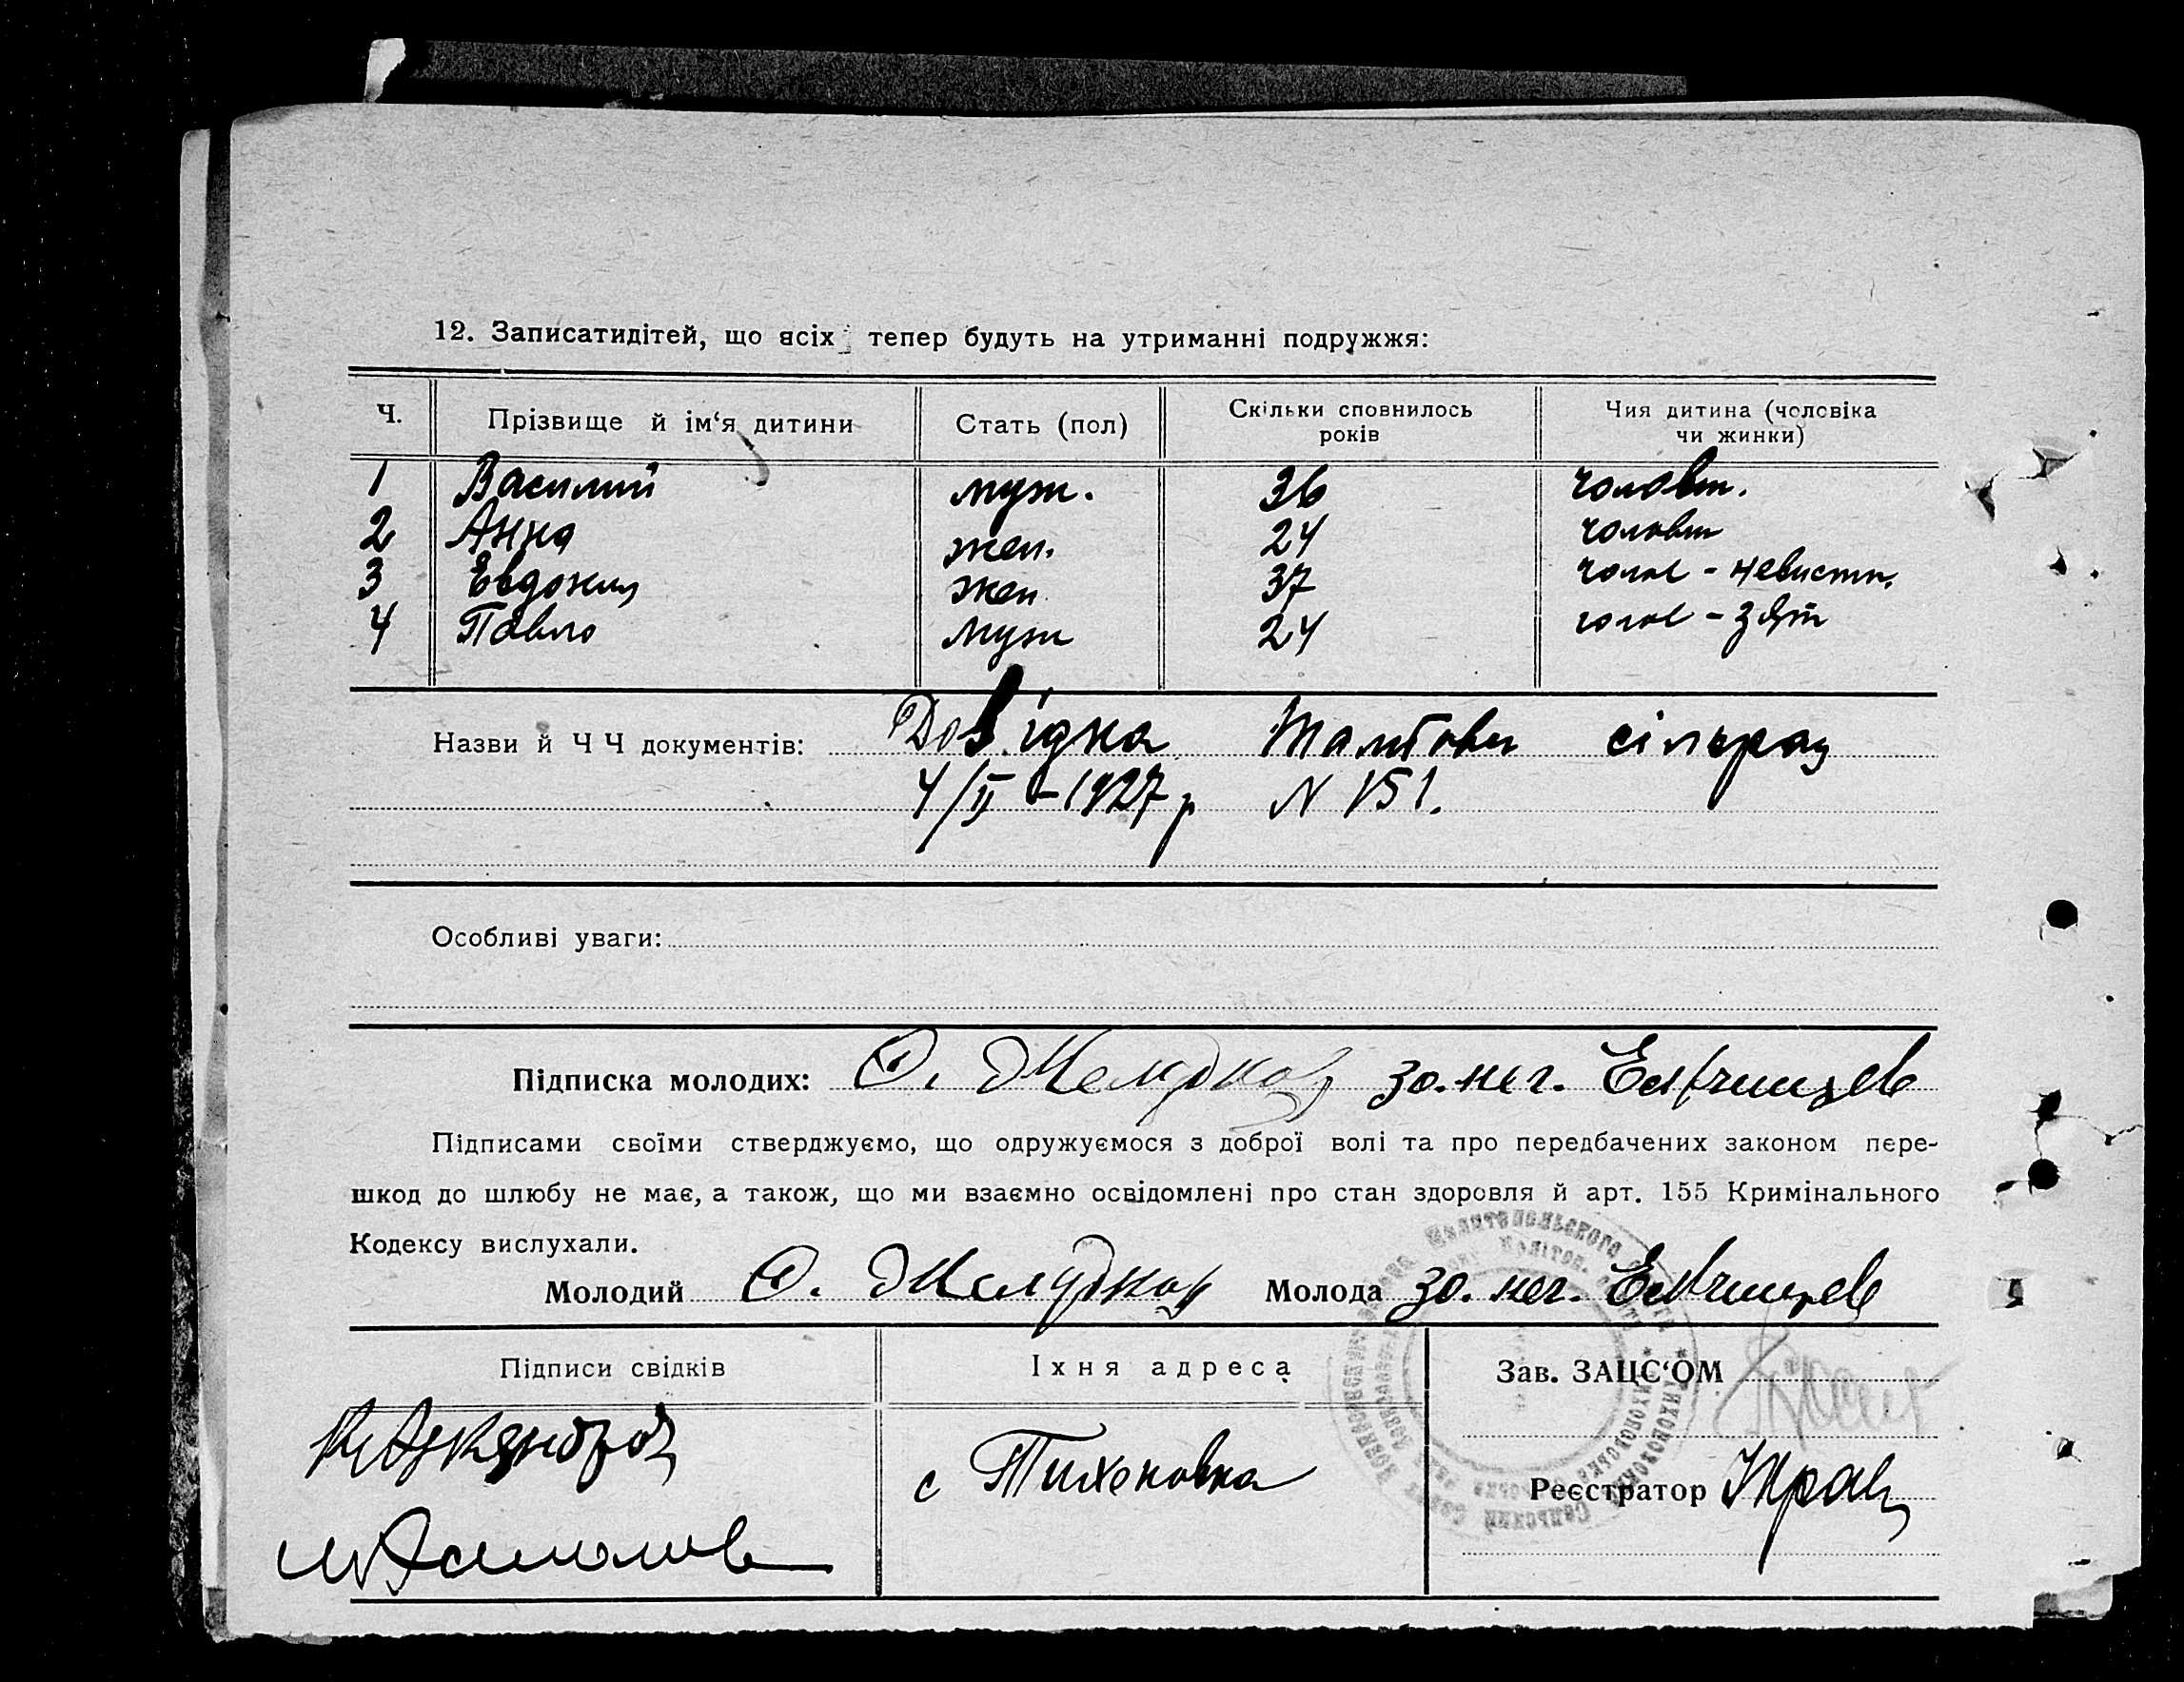 12. Записатидітей, що всіх тепер будуть на утриманні подружжя:
Ч. Прізвище й ім‘я дитини Стать (пол) Скільки сповнилось років Чия дитина (чоловіка чи жинки)
1 Василий муж. 36 чоловік.
2 Анна жен. 24 чоловік
3 Евдокия жен 37 чолов - невистк.
4 Павло муж 24 чолов - зят
Назви й Ч Ч документів: Довідка сільрад
4/II - 1927 р N 151.
Особливі уваги:
Підписка молодих: Ф. Желудков за. нег.
Підписами своїми стверджуємо, що одружуємося з доброї волі та про передбачених законом пере-
шкод до шлюбу не має, а також, що ми взаємно освідомлені про стан здоровля й арт. 155 Кримінального
Кодексу вислухали.
Молодий Ф. Желудков Молода за. нег.
Підписи свідків Їхня адреса Зав. ЗАЦС‘ОМ
с Тихоновка
Реєстратор